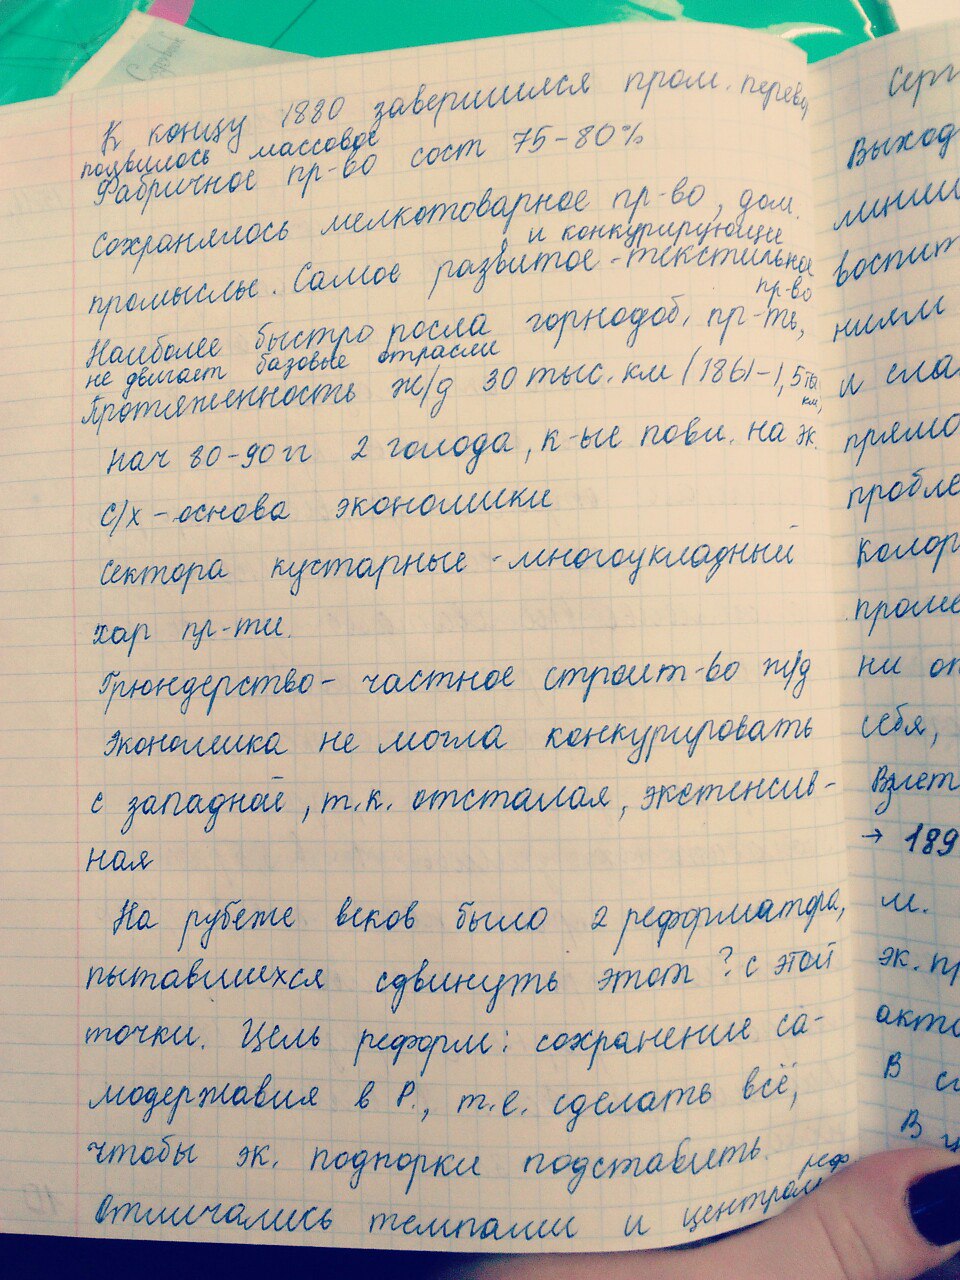 К концу 1880 завершился пром. перев
появилось массовое
Фабричное пр-во сост 75-80%
Сохранялось мелкотоварное пр-во, дом.
и конкурирующие
промыслы. Самое развитое - текстильное
пр-во
Наиболее быстро росла горнодоб. пр-ть,
не двигает базовые отрасли
Протяженность ж/д 30 тыс. км (1861-1,5 ты
км,
нач 80-90 гг 2 голода, к-ые повл. на эк.
с/х - основа экономики
Сектора кустарные - многоукладный
хар пр-ти.
Грюндерство - частное строит-во ж/д
Экономика не могла конкурировать
с западной, т.к. отсталая, экстенсив-
ная
На рубеже веков было 2 реформатора,
пытавшихся сдвинуть этот ? с этой
точки. Цель реформ: сохранение са-
модержавия в Р., т.е. сделать всё,
чтобы эк. подпорки подставить.
реф
Отличались темпами и центром
Серг
Выход
линии
воспит
ниям
и сла
прямо
пробле
Колор
проме
ни от
себя,
Взлет
→ 189
м.
эк. пр
акто
В с
В